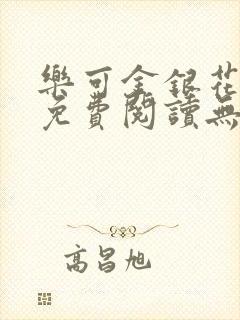 樂可金銀花
免費閱讀無
高昌旭